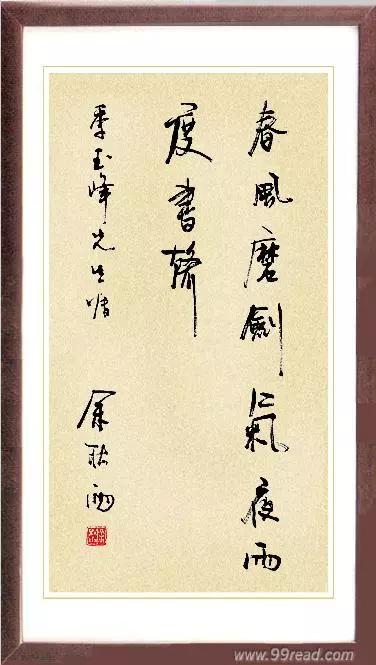 春風磨劍氣夜雨
度書聲
季玉峰先生嘱
余秋雨
www.99read.com